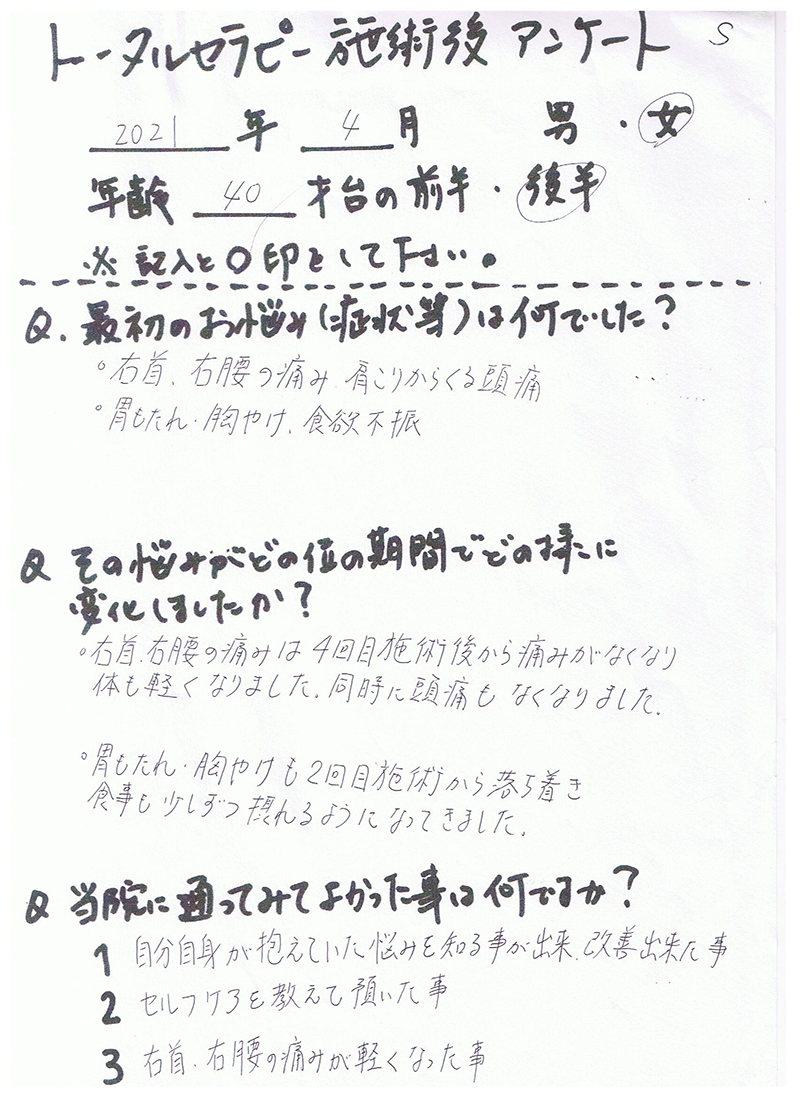 トータルセラピー施術後 アンケート S
2021 年 4 月 男・女
年齢 40 才台の前半・後半
※ 記入と○印をして下さい。
Q. 最初のお悩み(症状等)は何でした?
○右首、右腰の痛み、肩こりからくる頭痛
○胃もたれ・胸やけ、食欲不振
Q その悩みがどの位の期間でどの様に
変化しましたか?
○右首、右腰の痛みは4回目施術後から痛みがなくなり
体も軽くなりました。同時に頭痛もなくなりました。
○胃もたれ・胸やけも2回目施術から落ち着き
食事も少しずつ摂れるようになってきました。
Q 当院に通ってみてよかった事は何ですか?
1 自分自身が抱えていた悩みを知る事が出来、改善出来た事
2 セルフケアを教えて頂いた事
3 右首、右腰の痛みが軽くなった事